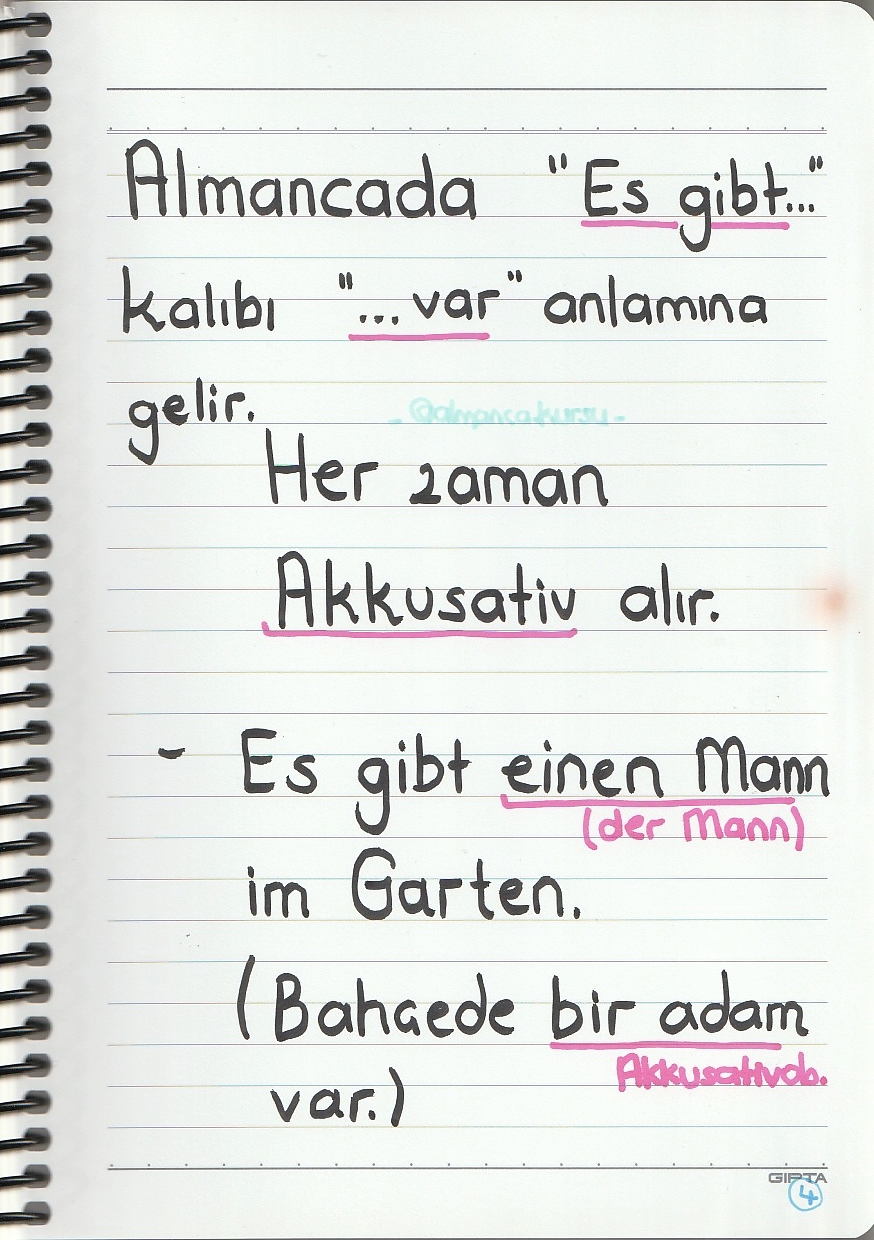 Almancada "Es gibt..."
kalıbı "...var" anlamına
gelir.
- @almancakursu -
Her zaman
Akkusativ alır.
- Es gibt einen Mann
(der Mann)
im Garten.
(Bahçede bir adam
Akkusativob.
var.)
GIPTA
4